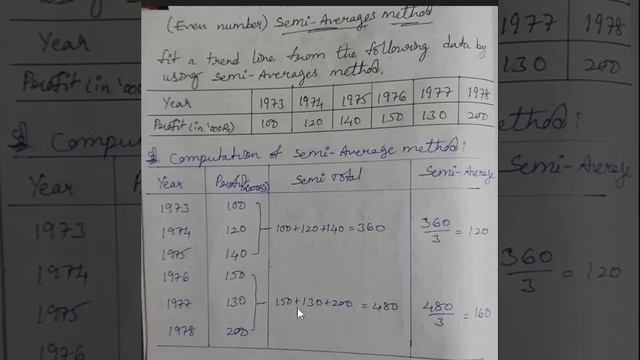 (Even number) Semi-Averages method
fit a trend line from the following data by
using semi-Averages method.
Year 1973 1974 1975 1976 1977 1978
Profit (in '000Rs) 100 120 140 150 130 200
Computation of semi-Average method:
Year Profit ('000Rs) Semi Total Semi-Average
1973 100
1974 120 100+120+140 = 360 360/3 = 120
1975 140
1976 150
1977 130 150+130+200 = 480 480/3 = 160
1978 200